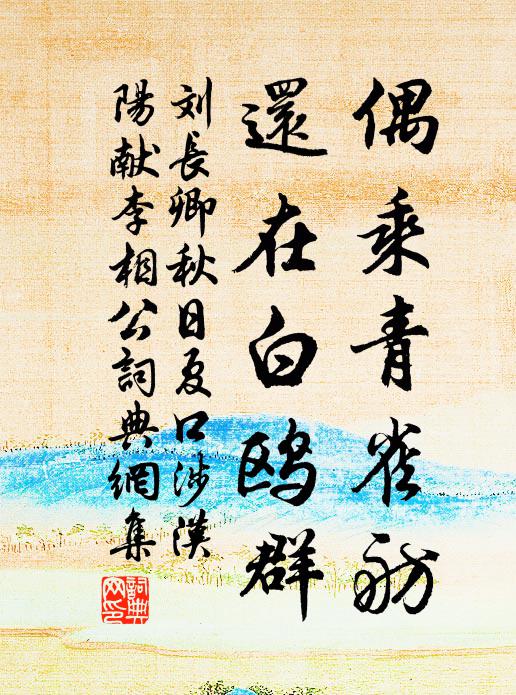 偶乘青雀舫
還在白鸥群
刘長卿秋日夏口涉漢
陽献李相公詞典網集